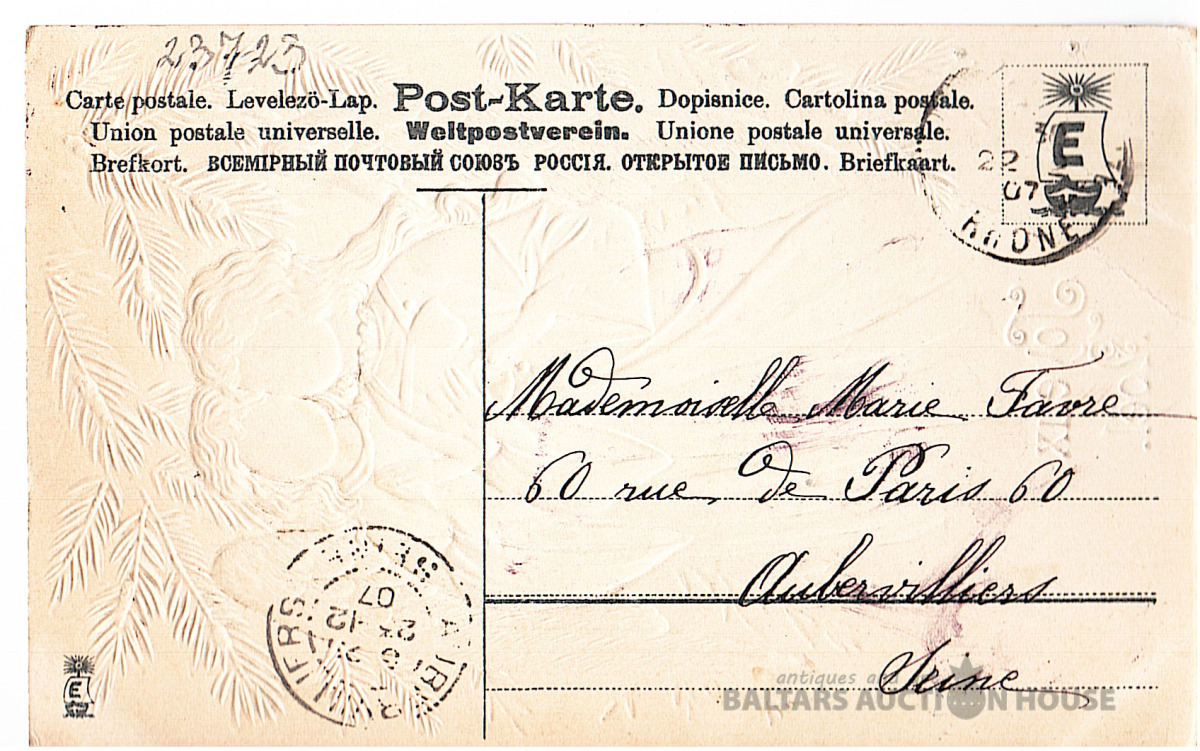 23723
Carte postale. Levelezö-Lap. Post-Karte. Dopisnice. Cartolina postale.
Union postale universelle. Weltpostverein. Unione postale universale.
Brefkort. ВСЕМІРНЫЙ ПОЧТОВЫЙ СОЮЗЪ РОССІЯ. ОТКРЫТОЕ ПИСЬМО. Briefkaart.
E
22
07
RHONE
Mademoiselle Marie Favre
60 rue de Paris 60
Aubervilliers
Seine
AUBERVILLIERS
23-12
07
SEINE
E
antiques and
BALTARS AUCTION HOUSE